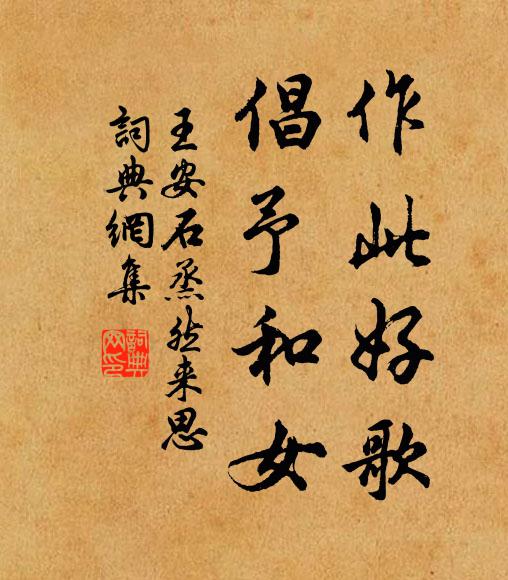 作此好歌
倡予和女
王安石烝然来思
詞典網集
詞典
网印